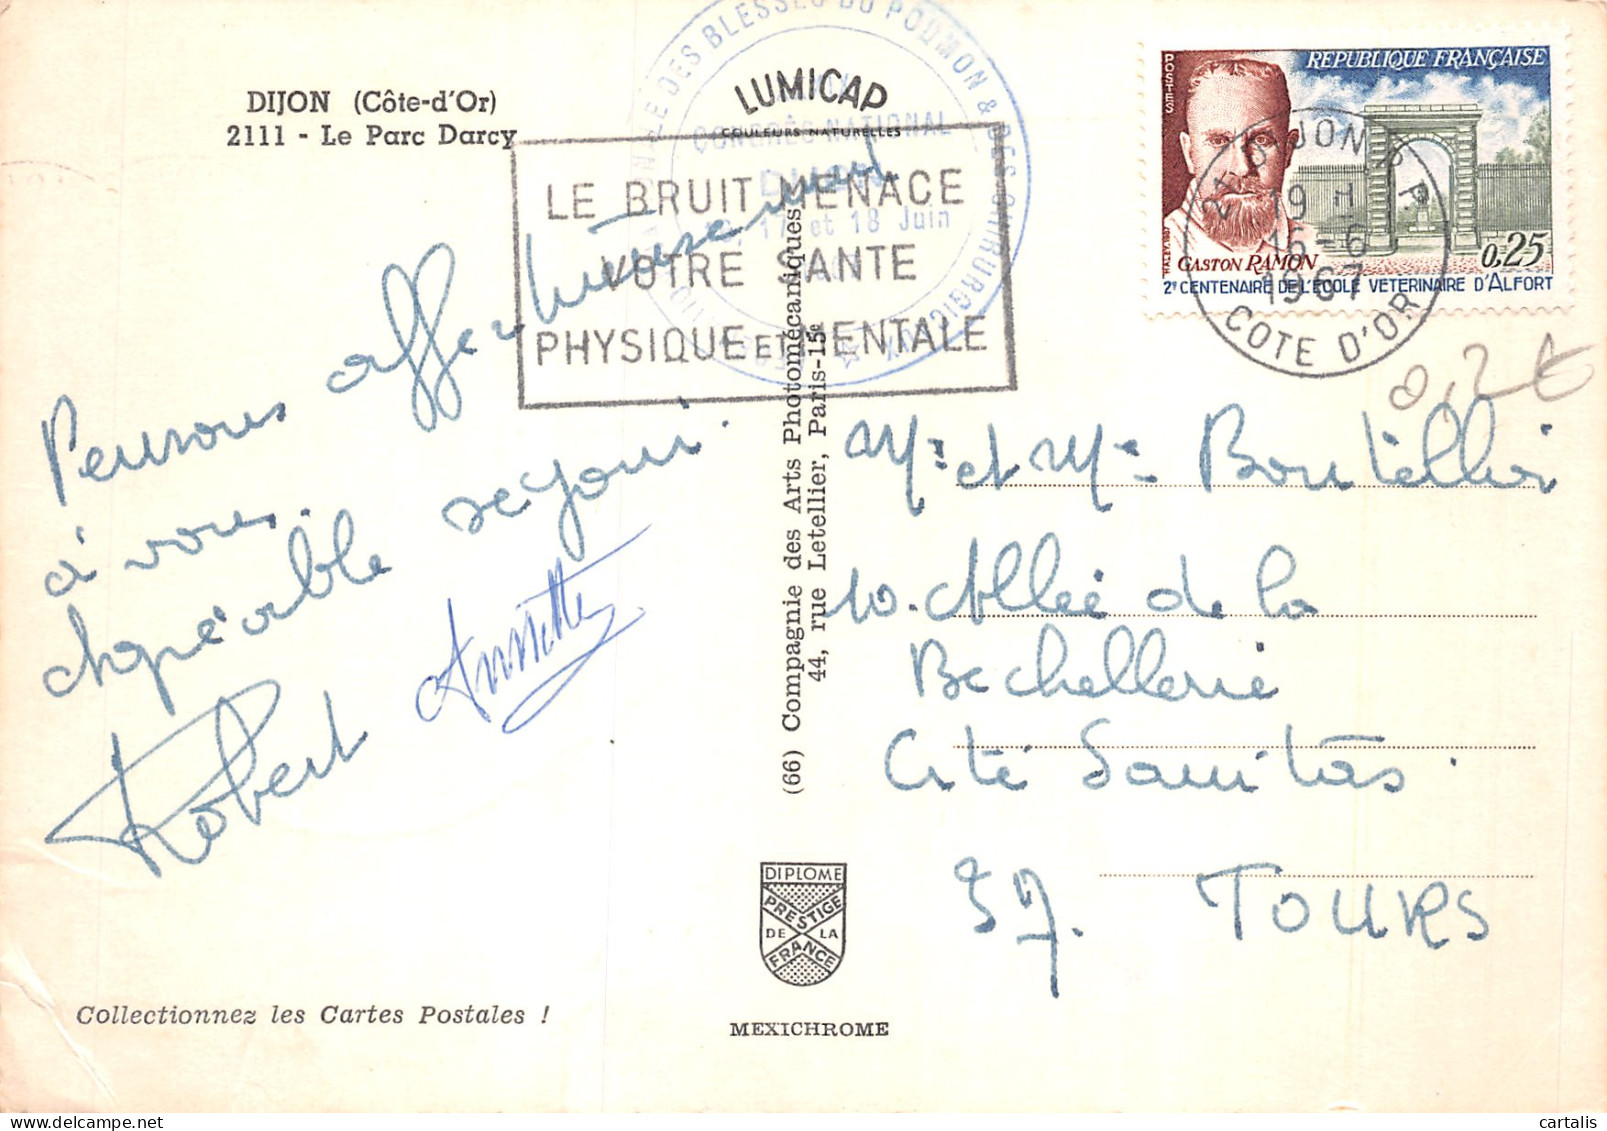 DIJON (Côte-d'Or)
2111 - Le Parc Darcy
LUMICAP
COULEURS NATURELLES
DES BLESSÉS DU POUMON & DES CHIRURGICAUX
CONGRÈS NATIONAL
DIJON
17 et 18 Juin
LE BRUIT MENACE
VOTRE SANTE
PHYSIQUE ET MENTALE
POSTES
REPUBLIQUE FRANÇAISE
GASTON RAMON
0,25
2e CENTENAIRE DE L'ÉCOLE VETERINAIRE D'ALFORT
HALEY.1967
21 DIJON R.P.
19 H
16-6
1967
COTE D'OR
0,2€
Pensons affectueusement
à vous.
Agréable séjour.
Robert Annette
Mr et Mme Bouteiller
10. Allée de la
Bechellerie
Cité Sanitas.
37. TOURS
(66) Compagnie des Arts Photomécaniques
44, rue Letellier, Paris-15e
DIPLOME
PRESTIGE
DE LA
FRANCE
MEXICHROME
Collectionnez les Cartes Postales !
cartalis